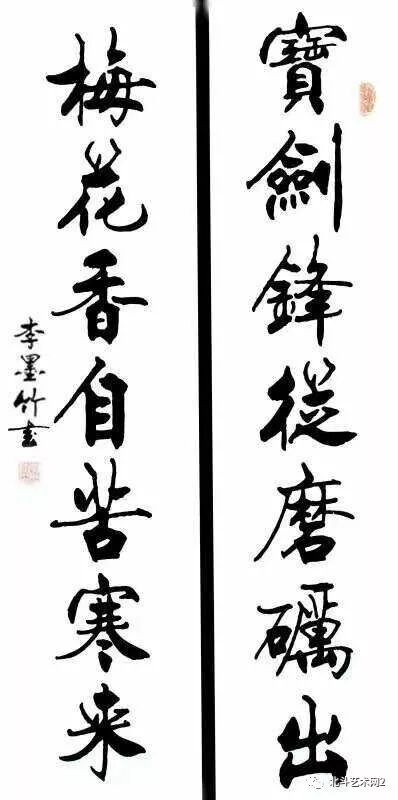 寶劍鋒從磨礪出
梅花香自苦寒来
李墨竹書
北斗艺术网2